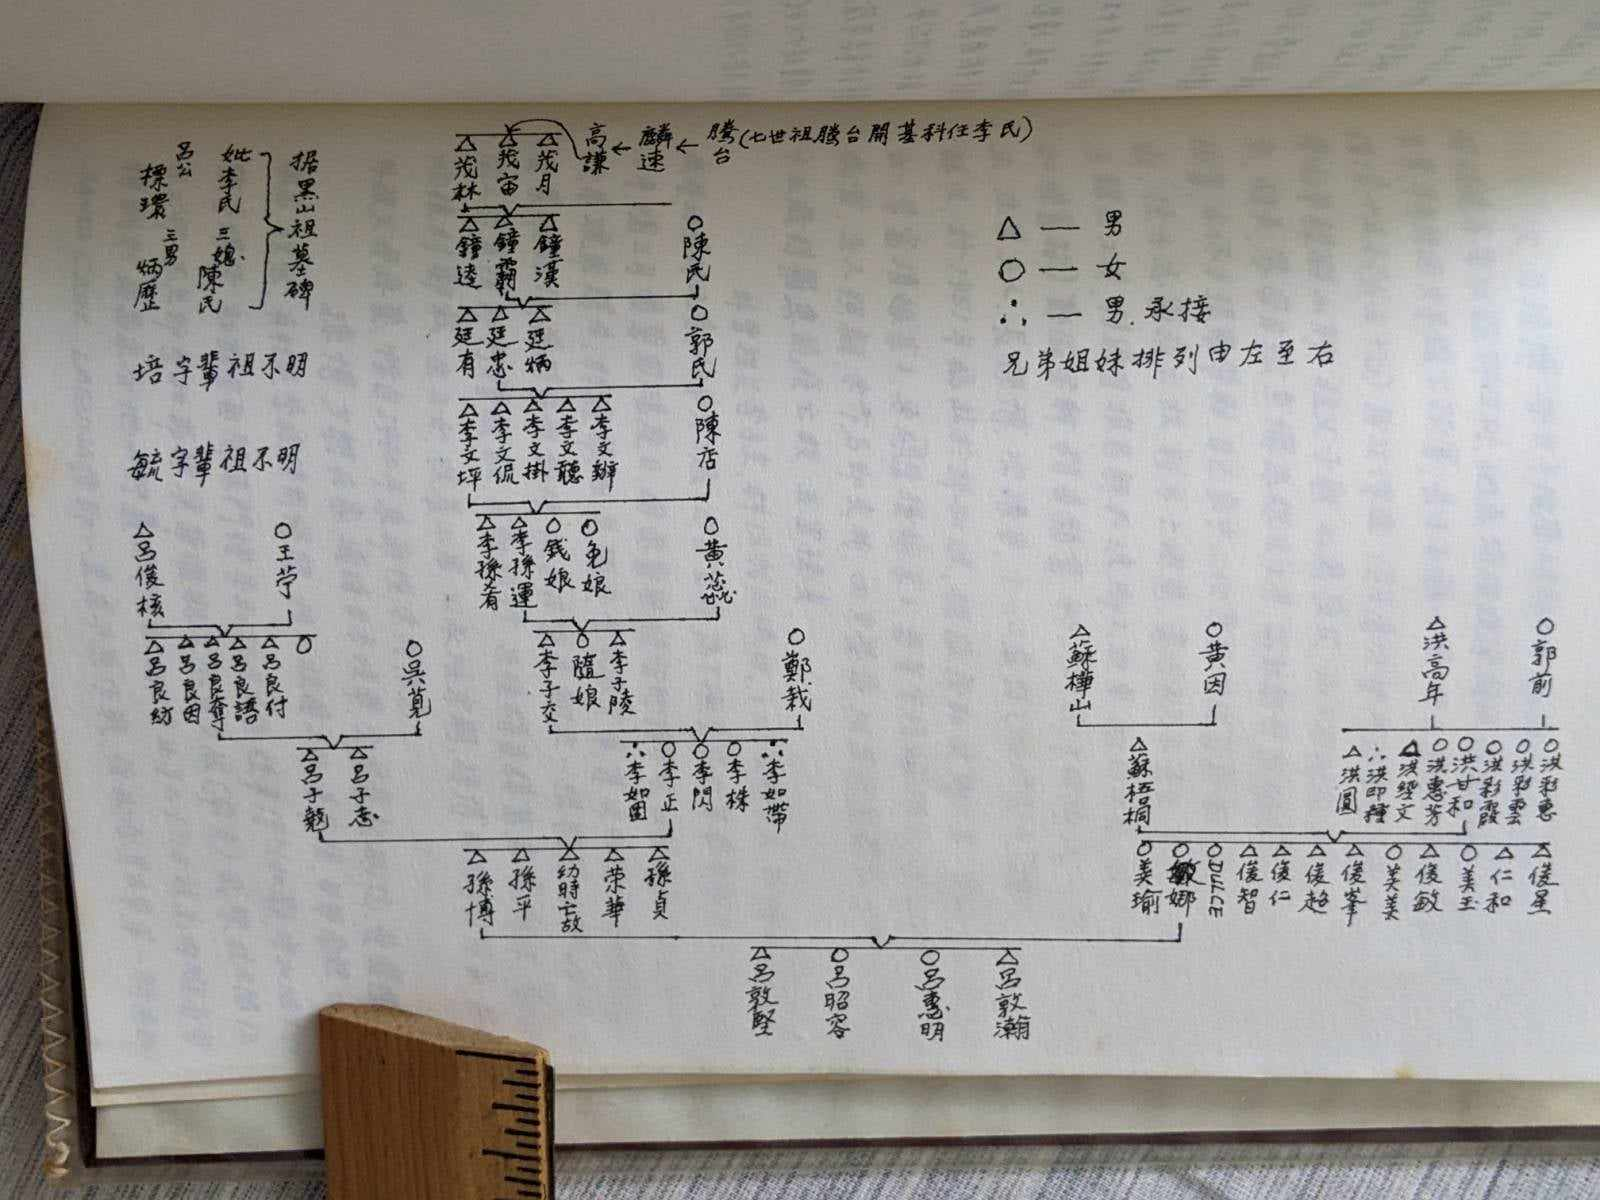 騰台(七世祖騰台開基科任李氏)
麟速
高謙
茂林
茂宙
茂月
鐘逵
鐘霸
鐘漢
陳氏
廷有
廷忠
廷炳
郭氏
李文坪
李文侃
李文掛
李文聽
李文辦
陳店
李孫宥
李孫運
錢娘
兔娘
黃蕊
李子交
隨娘
李子陵
鄭栽
李如圖
李正
李閃
李株
李如帶
据黑山祖墓碑
呂公
標環
妣李氏
三男
炳歷
三媳陳氏
培字輩祖不明
毓字輩祖不明
呂俊核
王苧
呂良紡
呂良因
呂良奪
呂良語
呂良付
吳莧
呂子競
呂子志
孫博
孫平
幼時亡故
荣華
孫貞
△ — 男
○ — 女
∴ — 男.承接
兄弟姐妹排列由左至右
蘇樺山
黃因
洪高年
郭前
蘇梧桐
洪圓
洪印種
洪經文
洪惠芳
洪甘和
洪彩霞
洪彩雲
洪彩惠
美瑜
敏娜
DULCE
俊智
俊仁
俊超
俊峯
美美
俊敏
美玉
仁和
俊星
呂敦堅
呂昭容
呂惠明
呂敦瀚